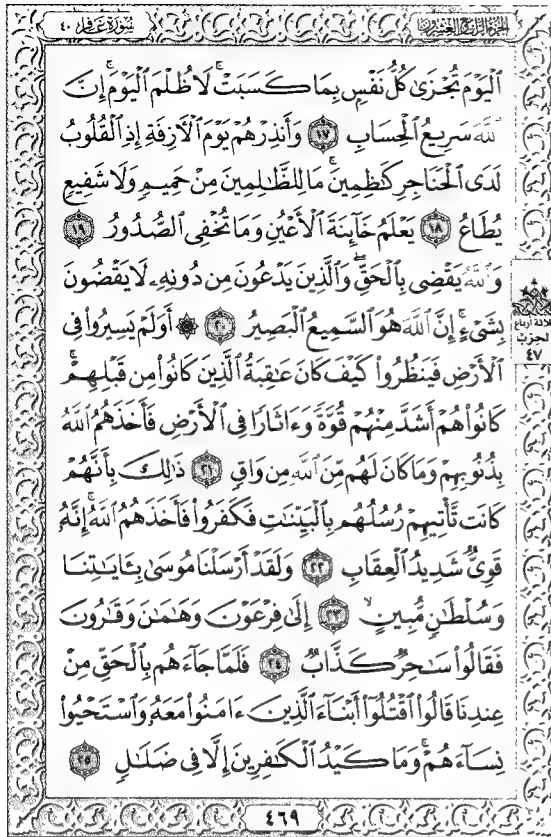 سُورَةُ غَافِرٍ ٤٠
الجُزْءُ الرَّابِعُ وَالعِشْرُونَ
ٱلۡيَوۡمَ تُجۡزَىٰ كُلُّ نَفۡسِۭ بِمَا كَسَبَتۡۚ لَا ظُلۡمَ ٱلۡيَوۡمَۚ إِنَّ
ٱللَّهَ سَرِيعُ ٱلۡحِسَابِ ١٧ وَأَنذِرۡهُمۡ يَوۡمَ ٱلۡأٓزِفَةِ إِذِ ٱلۡقُلُوبُ
لَدَى ٱلۡحَنَاجِرِ كَٰظِمِينَۚ مَا لِلظَّٰلِمِينَ مِنۡ حَمِيمٖ وَلَا شَفِيعٖ
يُطَاعُ ١٨ يَعۡلَمُ خَآئِنَةَ ٱلۡأَعۡيُنِ وَمَا تُخۡفِي ٱلصُّدُورُ ١٩
وَٱللَّهُ يَقۡضِي بِٱلۡحَقِّۖ وَٱلَّذِينَ يَدۡعُونَ مِن دُونِهِۦ لَا يَقۡضُونَ
بِشَيۡءٍۗ إِنَّ ٱللَّهَ هُوَ ٱلسَّمِيعُ ٱلۡبَصِيرُ ٢٠ ۞ أَوَلَمۡ يَسِيرُواْ فِي
ٱلۡأَرۡضِ فَيَنظُرُواْ كَيۡفَ كَانَ عَٰقِبَةُ ٱلَّذِينَ كَانُواْ مِن قَبۡلِهِمۡۚ
كَانُواْ هُمۡ أَشَدَّ مِنۡهُمۡ قُوَّةٗ وَءَاثَارٗا فِي ٱلۡأَرۡضِ فَأَخَذَهُمُ ٱللَّهُ
بِذُنُوبِهِمۡ وَمَا كَانَ لَهُم مِّنَ ٱللَّهِ مِن وَاقٖ ٢١ ذَٰلِكَ بِأَنَّهُمۡ
كَانَت تَّأۡتِيهِمۡ رُسُلُهُم بِٱلۡبَيِّنَٰتِ فَكَفَرُواْ فَأَخَذَهُمُ ٱللَّهُۚ إِنَّهُۥ
قَوِيّٞ شَدِيدُ ٱلۡعِقَابِ ٢٢ وَلَقَدۡ أَرۡسَلۡنَا مُوسَىٰ بِـَٔايَٰتِنَا
وَسُلۡطَٰنٖ مُّبِينٍ ٢٣ إِلَىٰ فِرۡعَوۡنَ وَهَٰمَٰنَ وَقَٰرُونَ
فَقَالُواْ سَٰحِرٞ كَذَّابٞ ٢٤ فَلَمَّا جَآءَهُم بِٱلۡحَقِّ مِنۡ
عِندِنَا قَالُواْ ٱقۡتُلُوٓاْ أَبۡنَآءَ ٱلَّذِينَ ءَامَنُواْ مَعَهُۥ وَٱسۡتَحۡيُواْ
نِسَآءَهُمۡۚ وَمَا كَيۡدُ ٱلۡكَٰفِرِينَ إِلَّا فِي ضَلَٰلٖ ٢٥
ثلاثة أرباع
الحزب
٤٧
٤٦٩